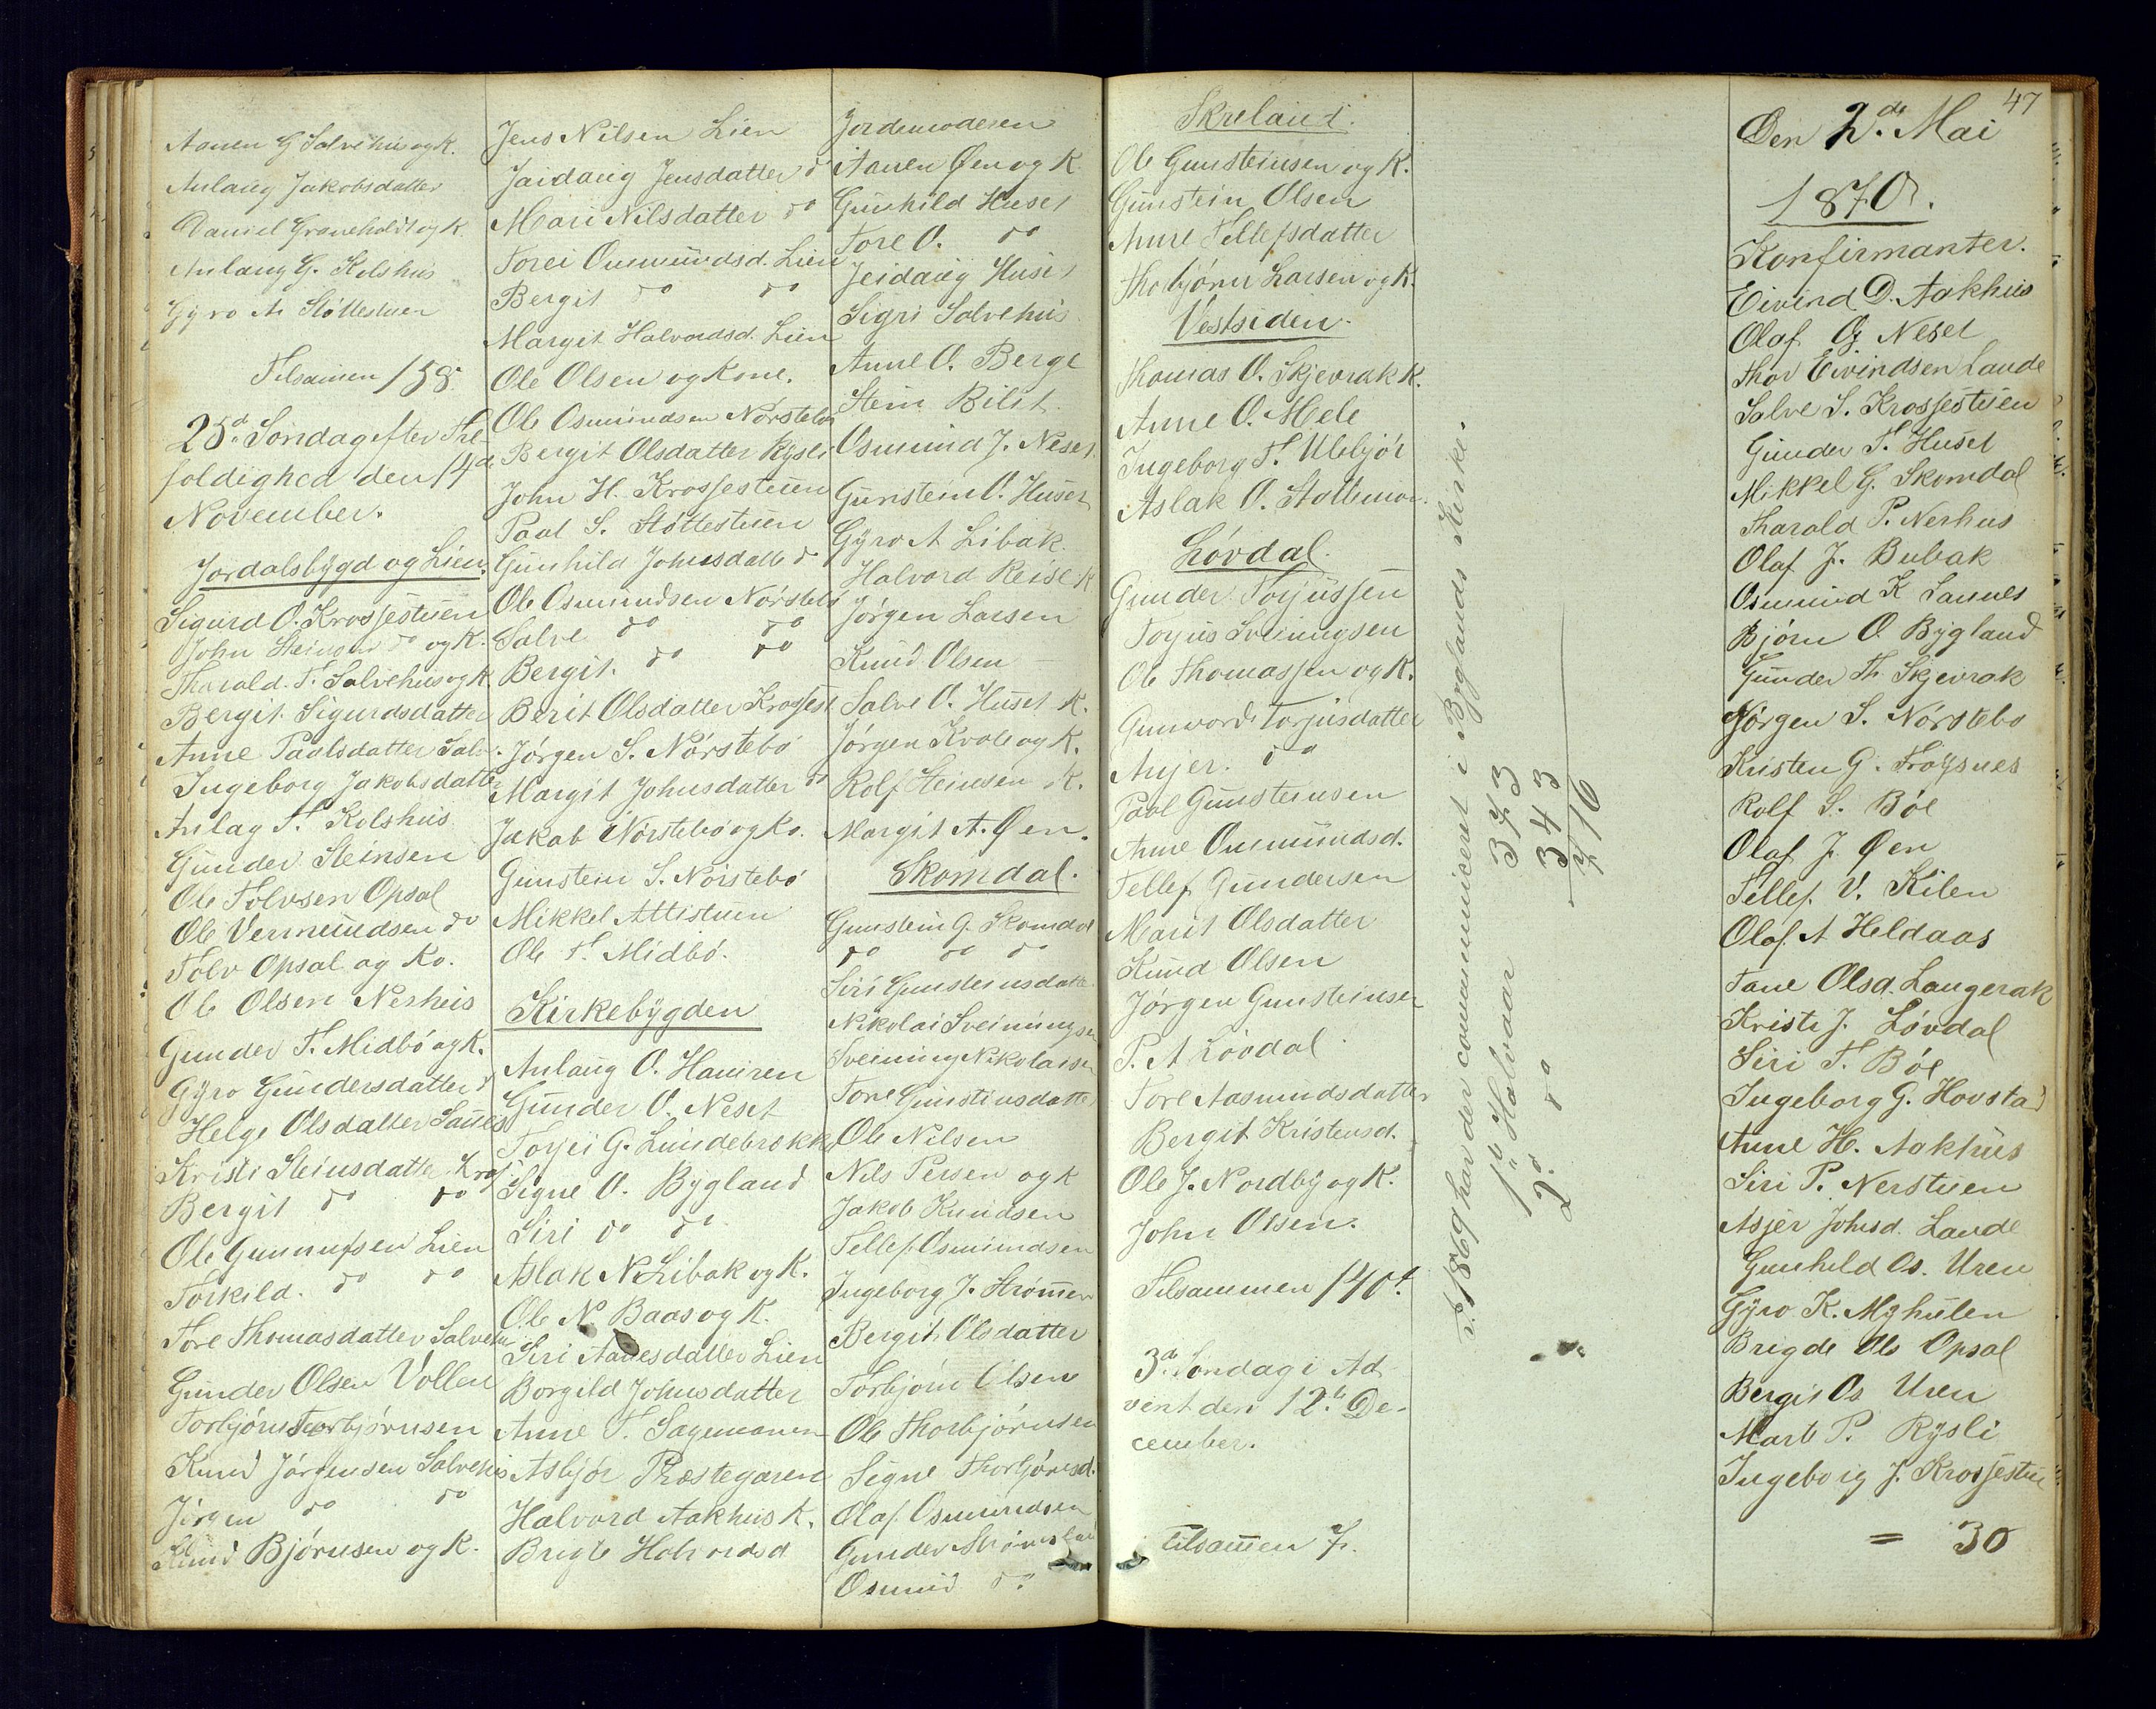 Aanen G Salvehus og K.
Anlaug Jakobsdatter
Daniel Graneholdt og K.
Anlaug G. Kilshus
Gyro A. Støttestuen
Tilsamen 158.
25de Søndag efter Tre-
foldighed den 14de
November.
Jordalsbygd og Lien.
Sigurd O. Krossestuen
John Steinson do og K.
Tharald T. Salvehus og K.
Bergit Sigurdsdatter
Anne Paalsdatter Salv.
Ingeborg Jakobsdatter
Anlag T. Kolshus
Gunder Steinsen
Ole Tolvsen Opsal
Ole Vermundsen do
Tolv Opsal og Ko.
Ole Olsen Nerheis
Gunder T. Midbø og K.
Gyro Gundersdatter do
Helge Olsdatter Sanes
Kristi Steinsdatter Kros
Bergit do do
Ole Gunnufsen Lien
Torkild. do do
Tore Thomasdatter Salvehu
Gunder Olsen Vollen
Torbjørn Torbjørnsen
Knud Jørgensen Salvehus
Jørgen do do
Knud Bjørnsen og K.
Jens Nilsen Lien
Jaidaug Jensdatter do
Mari Nilsdatter do
Torei Oumundsd. Lien
Bergit do do
Margit Halvordsd. Lien
Ole Olsen og Kone.
Ole Osmundsen Nørstebø
Bergit Olsdatter Rysli
John H. Krossestuen
Paal S. Støttestuen
Gunhild Johnsdatte do
Ole Osmundsen Nørstebø
Salve do do
Bergit. do do
Berit Olsdatter Krossest
Jørgen S. Nørstebø
Margit Johnsdatter do
Jakob Nørstebø og Ko.
Gunstein S. Nørstebø
Mikkel Attistuen
Ole T. Midbø.
Kirkebygden
Anlaug O. Hamren
Gunder O. Neset
Torjei G. Lundebrokke
Signe O. Bygland
Siri do do
Aslak N Libak og K.
Ole N Baas og K.
Siri Aanesdatter Lien
Borgild Johnsdatter
Anne T. Sagemanen
Asbjør Præstegaren
Halvord Aakhus K.
Brigte Halvordsd
Jordemoderen
Aanen Øen og K.
Gunhild Huset
Tore O. do
Jeidaug Huset
Sigri Salvehus
Anne O. Berge
Stein Bilst.
Osmund J. Neset
Gunstein O. Huset
Gyro A Libak.
Halvord Reise K
Jørgen Larsen
Knud Olsen
Salve O. Huset K.
Jørgen Kvale og K.
Rolf Steinsen K.
Margit A. Øen.
Skomdal.
Gunstein G. Skomdal
do do do
Siri Gunsteinsdatte
Nikolai Sveinungsen
Sveinung Nikolaisen
Tone Gunstinsdatter
Ole Nilsen
Nils Persen og K
Jakob Knudsen
Tellef Osmundsen
Ingeborg J. Strømen
Bergit Olsdatter
Torbjørn Olsen
Ole Thorbjørnsen
Signe Thorbjørnsd.
Olaf Osmundsen
Gunder
Osmund do.
Skreland.
Ole Gunsteinsen og K.
Gunstein Olsen
Anne Tellefsdatter
Thorbjørn Larsen og K.
Vestsiden.
Thomas O. Skjevrak K.
Anne O. Mele
Ingeborg T. Ulebjør
Aslak O. Stallemo
Løvdal.
Gunder Torjussen
Torjus Sveinungsen
Ole Thomassen og K.
Gunvord Torjusdatter
Anjer. do
Paal Gunsteinsen
Anne Oumundsd.
Tellef Gundersen
Marit Olsdatter
Knud Olsen
Jørgen Gunsteinsen
P. A Løvdal
Tore Aasmundsdatter
Bergit Kristensd.
Ole J. Nordby og K.
John Olsen.
Tilsammen 140.
3de Søndag i Ad
vent den 12te De-
cember.
tilsammen 7.
I 1869 har der communiceret i Byglands Kirke.
1te Halvaar 373
2de do 343
716
47
Den 2de Mai
1870.
Konfirmanter.
Eivind D. Aakhus
Olaf G. Neset
Thor Eivindsen Lande
Salve S. Krossestuen
Gunder T. Huset
Mikkel G. Skomdal
Tharald P. Nerhus
Olaf J. Bubak
Osmund K Sannes
Bjørn O Bygland
Gunder Th Skjevrak
Jørgen S. Nørstebø
Kristen G. Frøysnes
Rolf S. Bøe
Olaf J. Øen
Tellef V. Kilen
Olaf A Heldaas
Tane Olsd. Langerak
Kristi J. Løvdal
Siri T. Bøe
Ingeborg G. Hovstad
Anne H. Aakhus
Siri P. Nerstuen
Asjer Johnsd. Lande
Gunhild Os. Uren
Gyro K. Myhulen
Brigde Ols Opsal
Bergit Os Uren
Marte P. Rysli
Ingeborg J. Krossestue
= 30